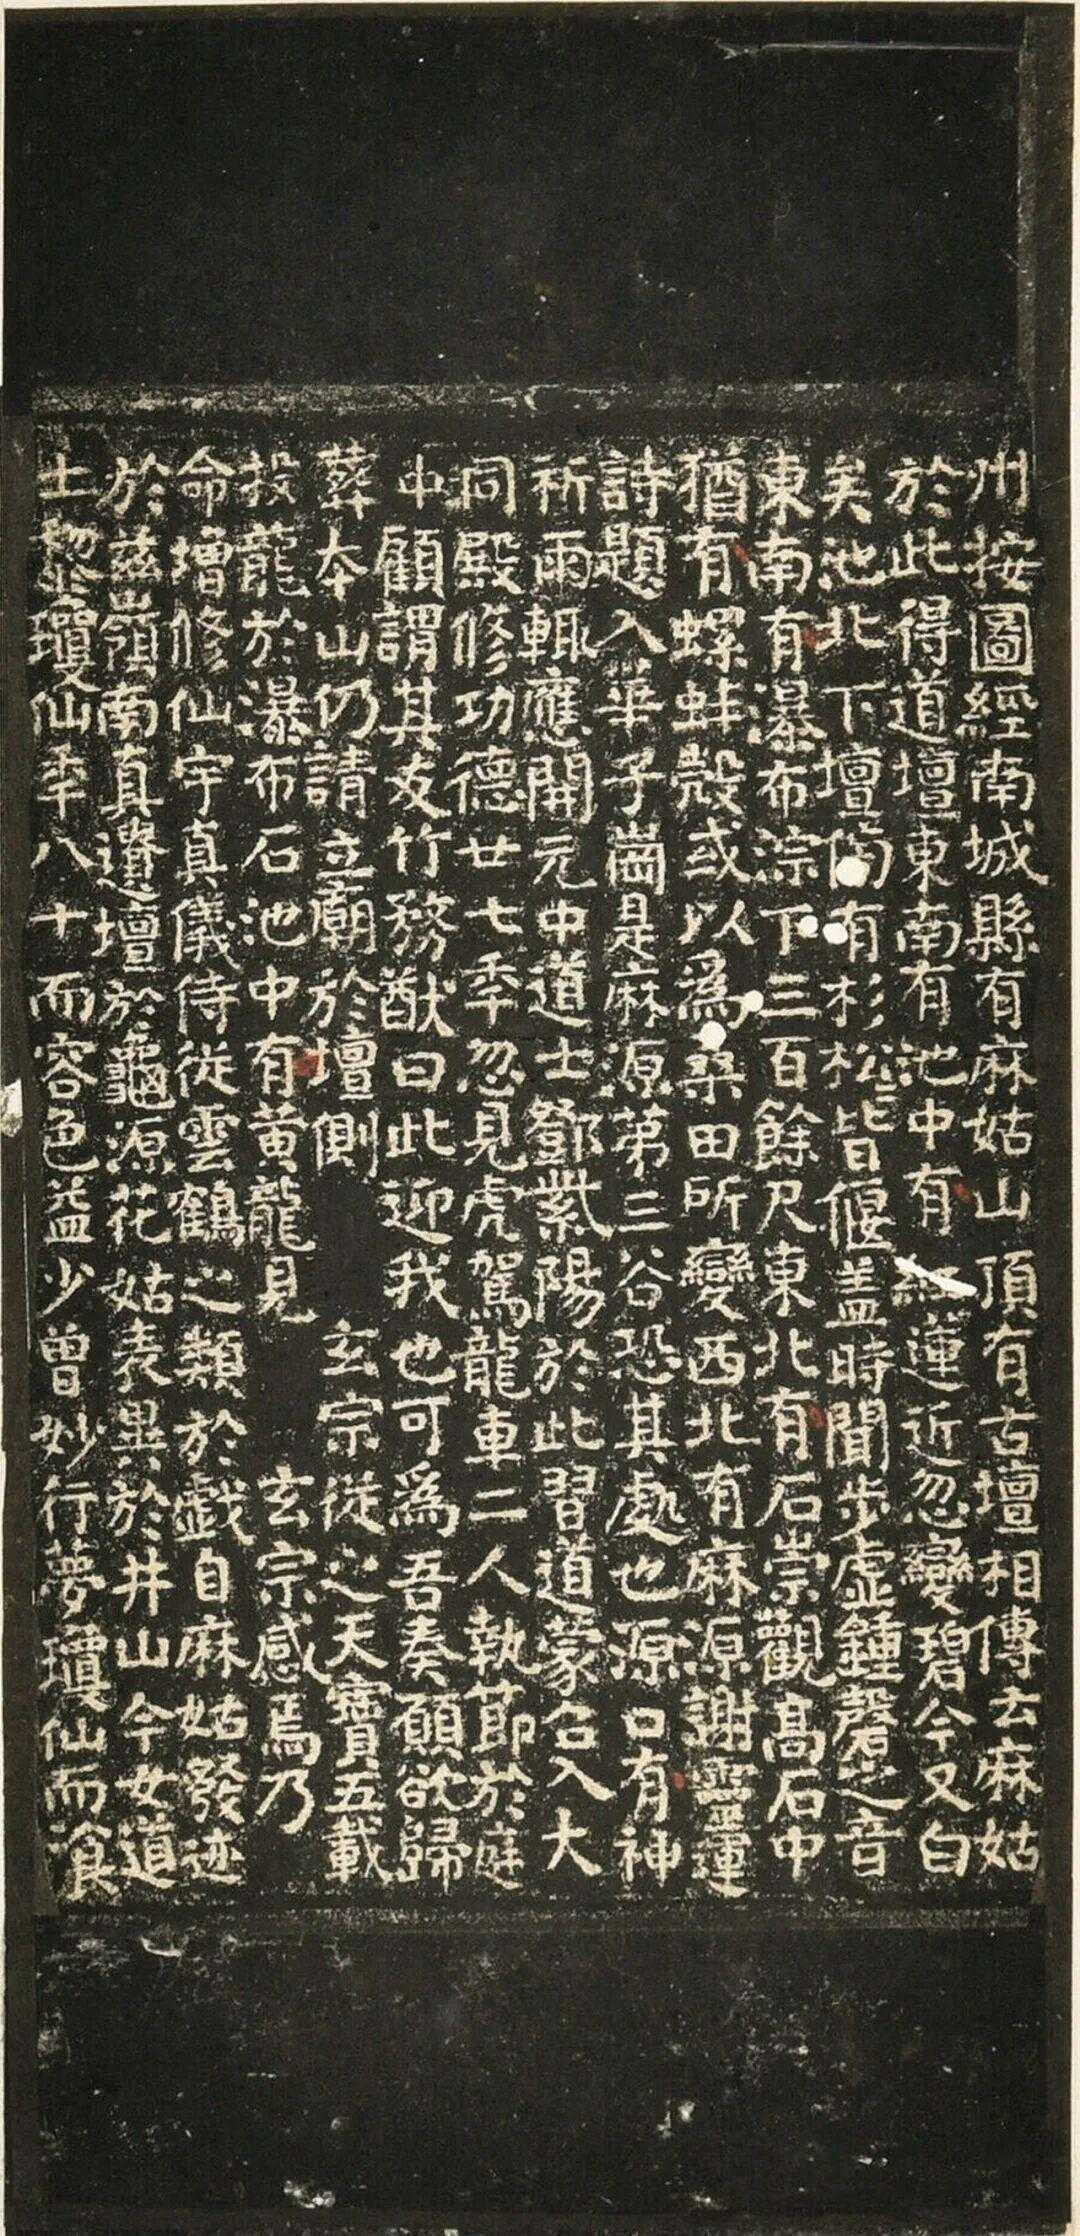 州按圖經南城縣有麻姑山頂有古壇相傳云麻姑
於此得道壇東南有池中有紅蓮近忽變碧今又白
矣池北下壇傍有杉松皆偃蓋時聞步虛鍾磬之音
東南有瀑布淙下三百餘尺東北有石崇觀高石中
猶有螺蚌殼或以為桑田所變西北有麻源謝靈運
詩題入華子崗是麻源第三谷恐其處也源口有神
祈雨輒應開元中道士鄧紫陽於此習道蒙召入大
同殿修功德廿七年忽見虎駕龍車二人執節於庭
中顧謂其友竹務猷曰此迎我也可為吾奏願欲歸
葬本山仍請立廟於壇側玄宗從之天寶五載
投龍於瀑布石池中有黃龍見玄宗感焉乃
命增修仙宇真儀侍從雲鶴之類於戲自麻姑發迹
於茲嶺南真遺壇於龜源花姑表異於井山今女道
士黎瓊仙年八十而容色益少曾妙行夢瓊仙而飡